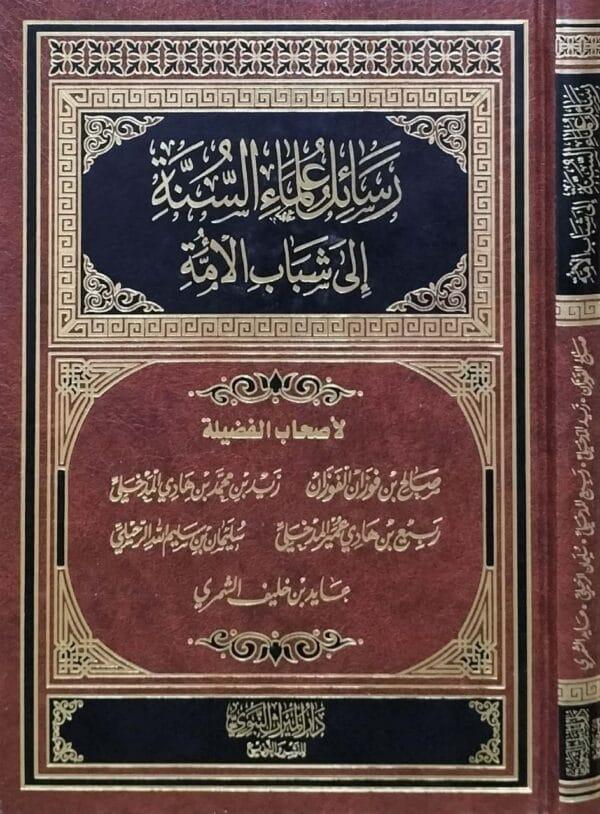 رَسَائِلُ عُلَمَاءِ السُّنَّةِ
إِلَى شَبَابِ الْأُمَّةِ
لأصحاب الفضيلة
صالح بن فوزان الفوزان زيد بن محمد بن هادي المدخلي
ربيع بن هادي عمير المدخلي سليمان بن سليم الله الرحيلي
جايد بن خليف الشمري
دار الميراث النبوي
للنشر والتوزيع
رسائل علماء السنة إلى شباب الأمة
صالح الفوزان • زيد المدخلي • ربيع المدخلي • سليمان الرحيلي • جايد الشمري
دار الميراث النبوي